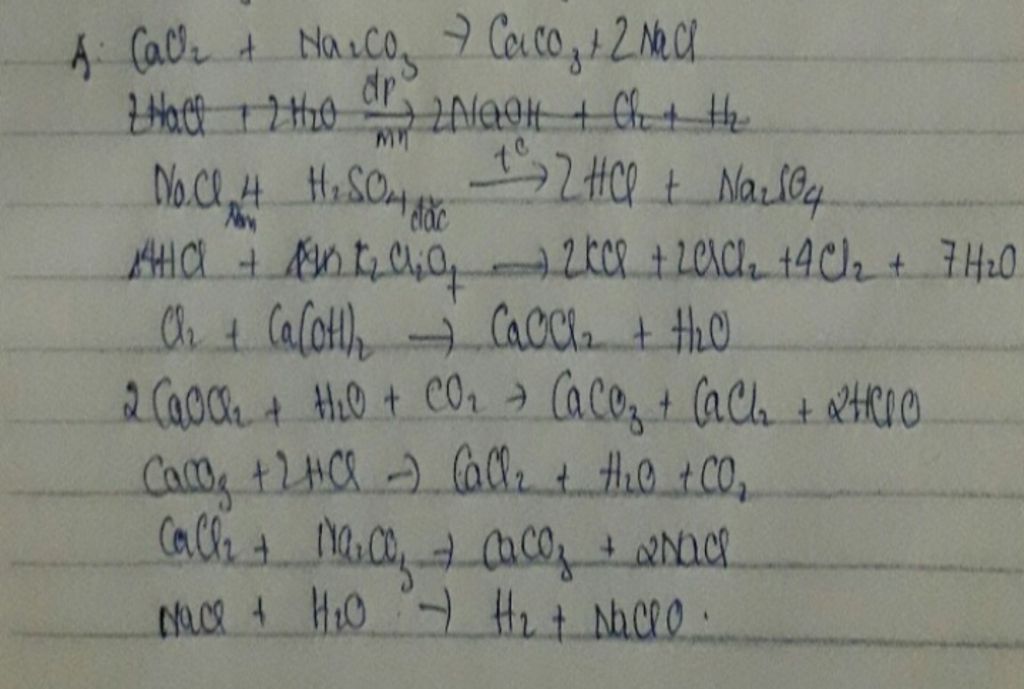 A: CaCl₂ + Na₂CO₃ → CaCO₃ + 2NaCl
2NaCl + 2H₂O →đp mn 2NaOH + Cl₂ + H₂
NaCl + H₂SO₄ đặc →t° 2HCl + Na₂SO₄
14HCl + K₂Cr₂O₇ → 2KCl + 2CrCl₂ + 4Cl₂ + 7H₂O
Cl₂ + Ca(OH)₂ → CaOCl₂ + H₂O
2CaOCl₂ + H₂O + CO₂ → CaCO₃ + CaCl₂ + 2HClO
CaCO₃ + 2HCl → CaCl₂ + H₂O + CO₂
CaCl₂ + Na₂CO₃ → CaCO₃ + 2NaCl
NaCl + H₂O → H₂ + NaClO.